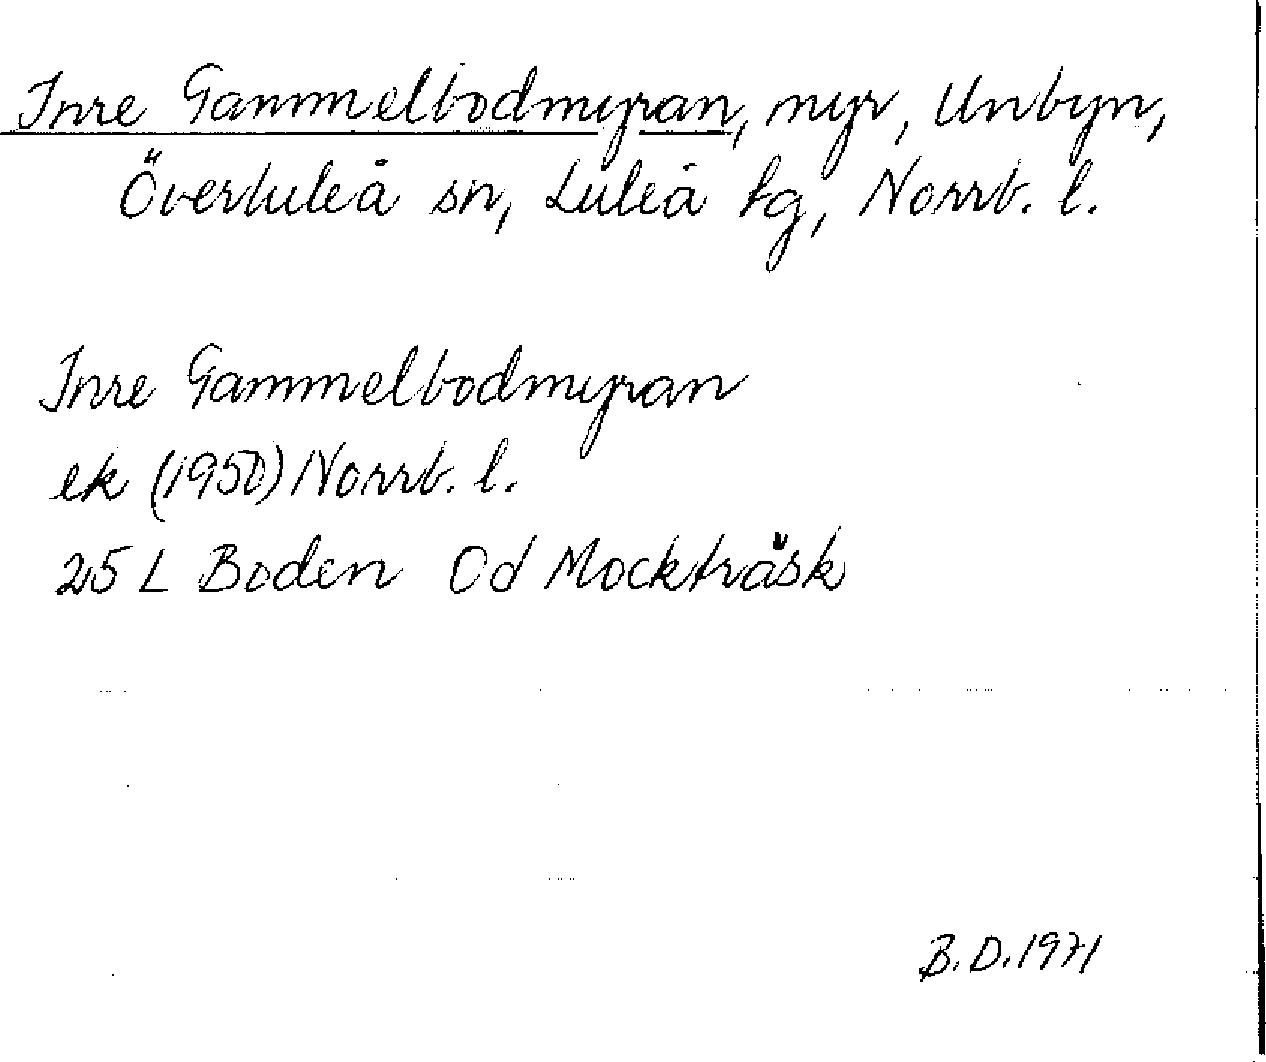 Inre Gammelbodmyran, myr, Unbyn,
Överluleå sn, Luleå tg, Norrb. l.
Inre Gammelbodmyran
ek (1950) Norrb. l.
25 L Boden Od Mockträsk
B.D. 1971